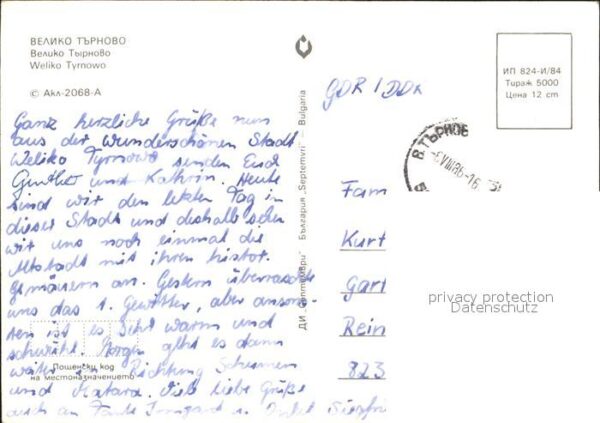 ВЕЛИКО ТЪРНОВО
Велико Тырново
Weliko Tyrnowo
© Акл-2068-А
Ganz herzliche Grüße nun
aus der wunderschönen Stadt
Weliko Tyrnowo senden Euch
Gunther und Kathrin. Heute
sind wir den letzten Tag in
dieser Stadt und deshalb sehen
wir uns noch einmal die
Altstadt mit ihren histor.
Gemäuern an. Gestern überraschte
uns das 1. Gewitter, aber anson-
sten ist es sehr warm und
schwühl. Morgen geht es dann
weiter in Richtung Schumen
und Madara. Viele liebe Grüße
auch an Tante Irmgard u. Onkel Siegfri
Пощенски код
на местоназначението
ДИ „Септември" България „Septemvri" — Bulgaria
GDR / DDR
ИП 824-И/84
Тираж 5000
Цена 12 cm
В.ТЪРНОВО
Fam
Kurt
Gart
Rein
823
privacy protection
Datenschutz